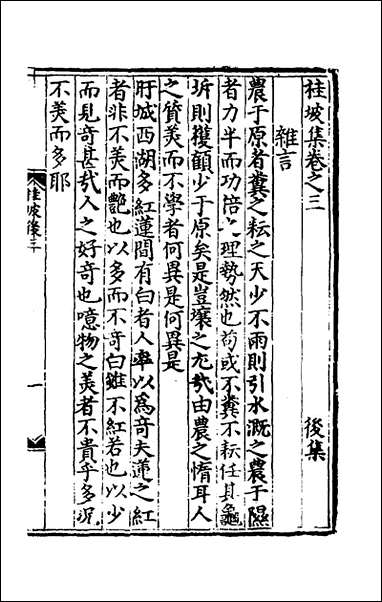 桂坡集卷之三　後集
雜言
農于原者糞之耘之天少不雨則引水溉之農于隰
者力半而功倍之理勢然也苟或不糞不耘任其龜
坼則穫顧少于原矣是豈壤之尤㢤由農之惰耳人
之質美而不學者何異是何異是
盱城西湖多紅蓮間有白者人率以爲奇夫蓮之紅
者非不美而艷也以多而不奇白雖不紅若也以少
而見奇甚㢤人之好奇也噫物之美者不貴乎多況
不美而多耶
桂坡後三
一